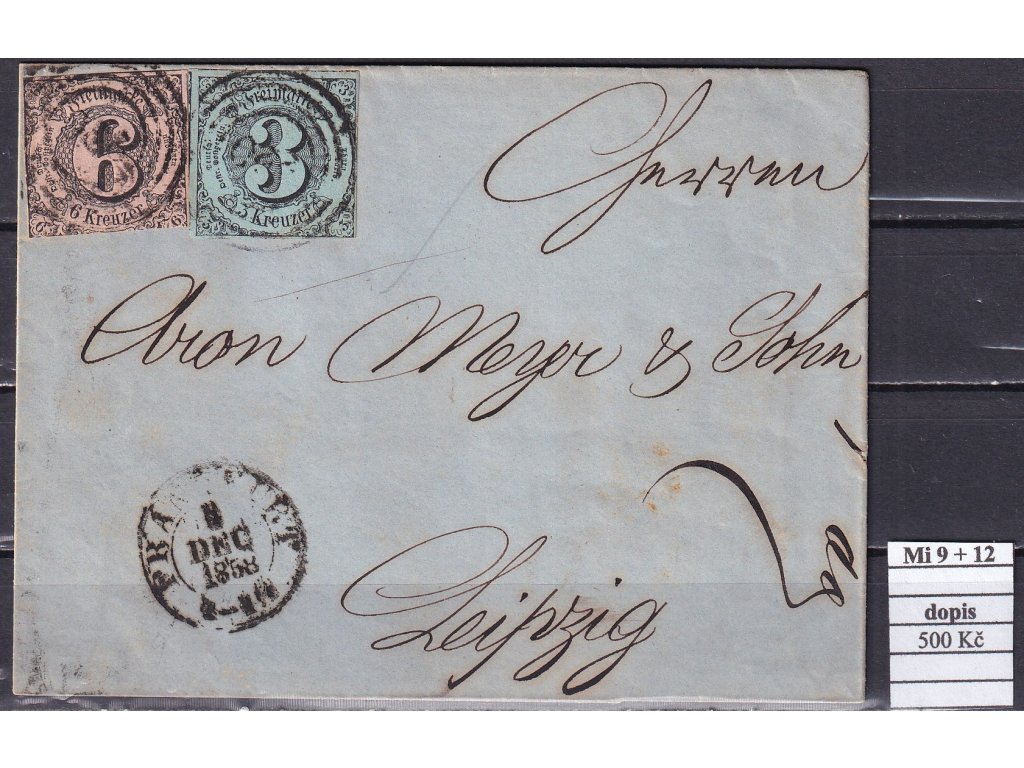 Freimarke
6
6 Kreuzer
Freimarke
3
3 Kreuzer
Herren
Aron Meyer & Sohn
Leipzig
FRANKFURT
8
DEC
1858
Mi 9 + 12
dopis
500 Kč